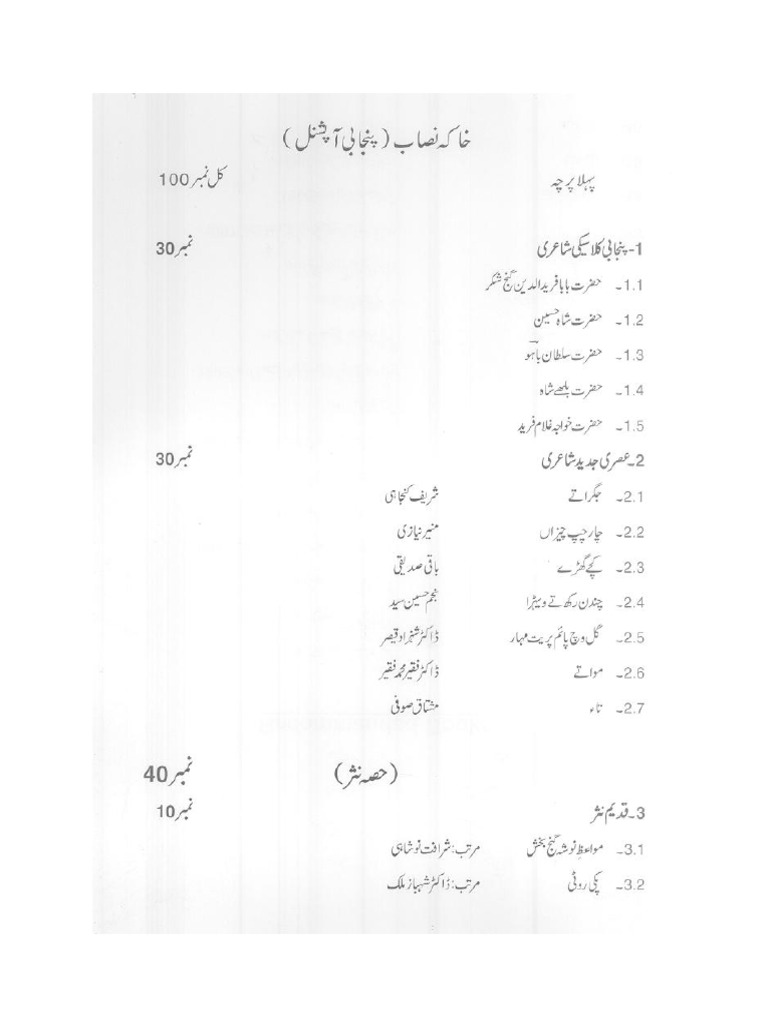 خاکہ نصاب (پنجابی آپشنل)
پہلا پرچہ کل نمبر 100
1- پنجابی کلاسیکی شاعری نمبر 30
1.1۔ حضرت بابا فرید الدین گنج شکر
1.2۔ حضرت شاہ حسین
1.3۔ حضرت سلطان باہو
1.4۔ حضرت بلھے شاہ
1.5۔ حضرت خواجہ غلام فرید
2۔ عصری جدید شاعری نمبر 30
2.1۔ جگراتے شریف کنجاہی
2.2۔ چار چپ چیزاں منیر نیازی
2.3۔ کچے گھڑے باقی صدیقی
2.4۔ چندن رکھ تے ویہڑا نجم حسین سید
2.5۔ گل وچ پائم پریت مہار ڈاکٹر شہزاد قیصر
2.6۔ مواتے ڈاکٹر فقیر محمد فقیر
2.7۔ تاء مشتاق صوفی
(حصہ نثر) نمبر 40
3۔ قدیم نثر نمبر 10
3.1۔ مواعظ نوشہ گنج بخش مرتب: شرافت نوشاہی
3.2۔ پکی روٹی مرتب: ڈاکٹر شہباز ملک